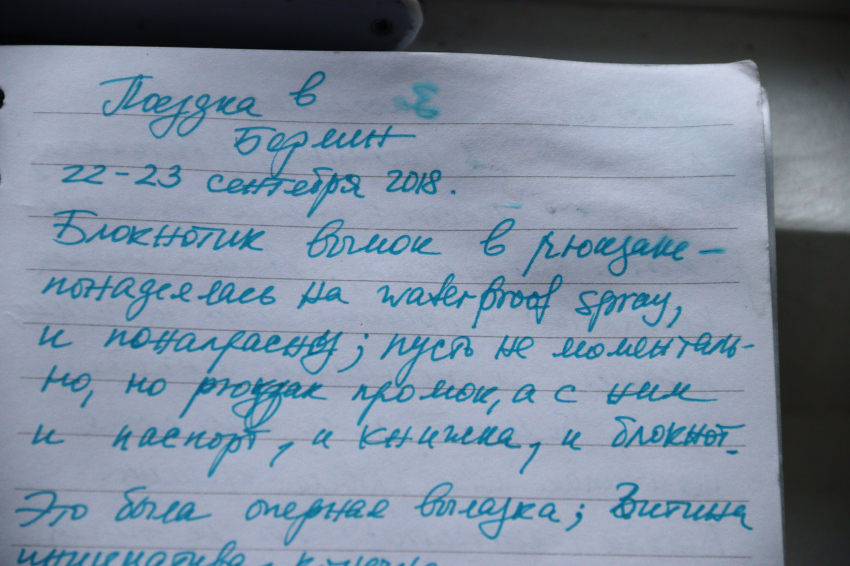 Поездка в
Берлин
22-23 сентября 2018.
Блокнотик вымок в рюкзаке -
понадеялась на waterproof spray,
и понапрасну; пусть не моменталь-
но, но рюкзак промок, а с ним
и паспорт, и книжка, и блокнот.
Это была оперная вылазка; Витина
инициатива, конечно